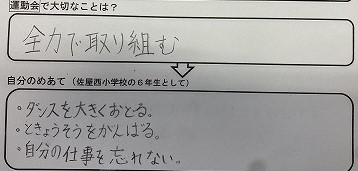 運動会で大切なことは？
全力で取り組む
自分のめあて（佐屋西小学校の６年生として）
・ダンスを大きくおどる。
・ときょうそうをがんばる。
・自分の仕事を忘れない。